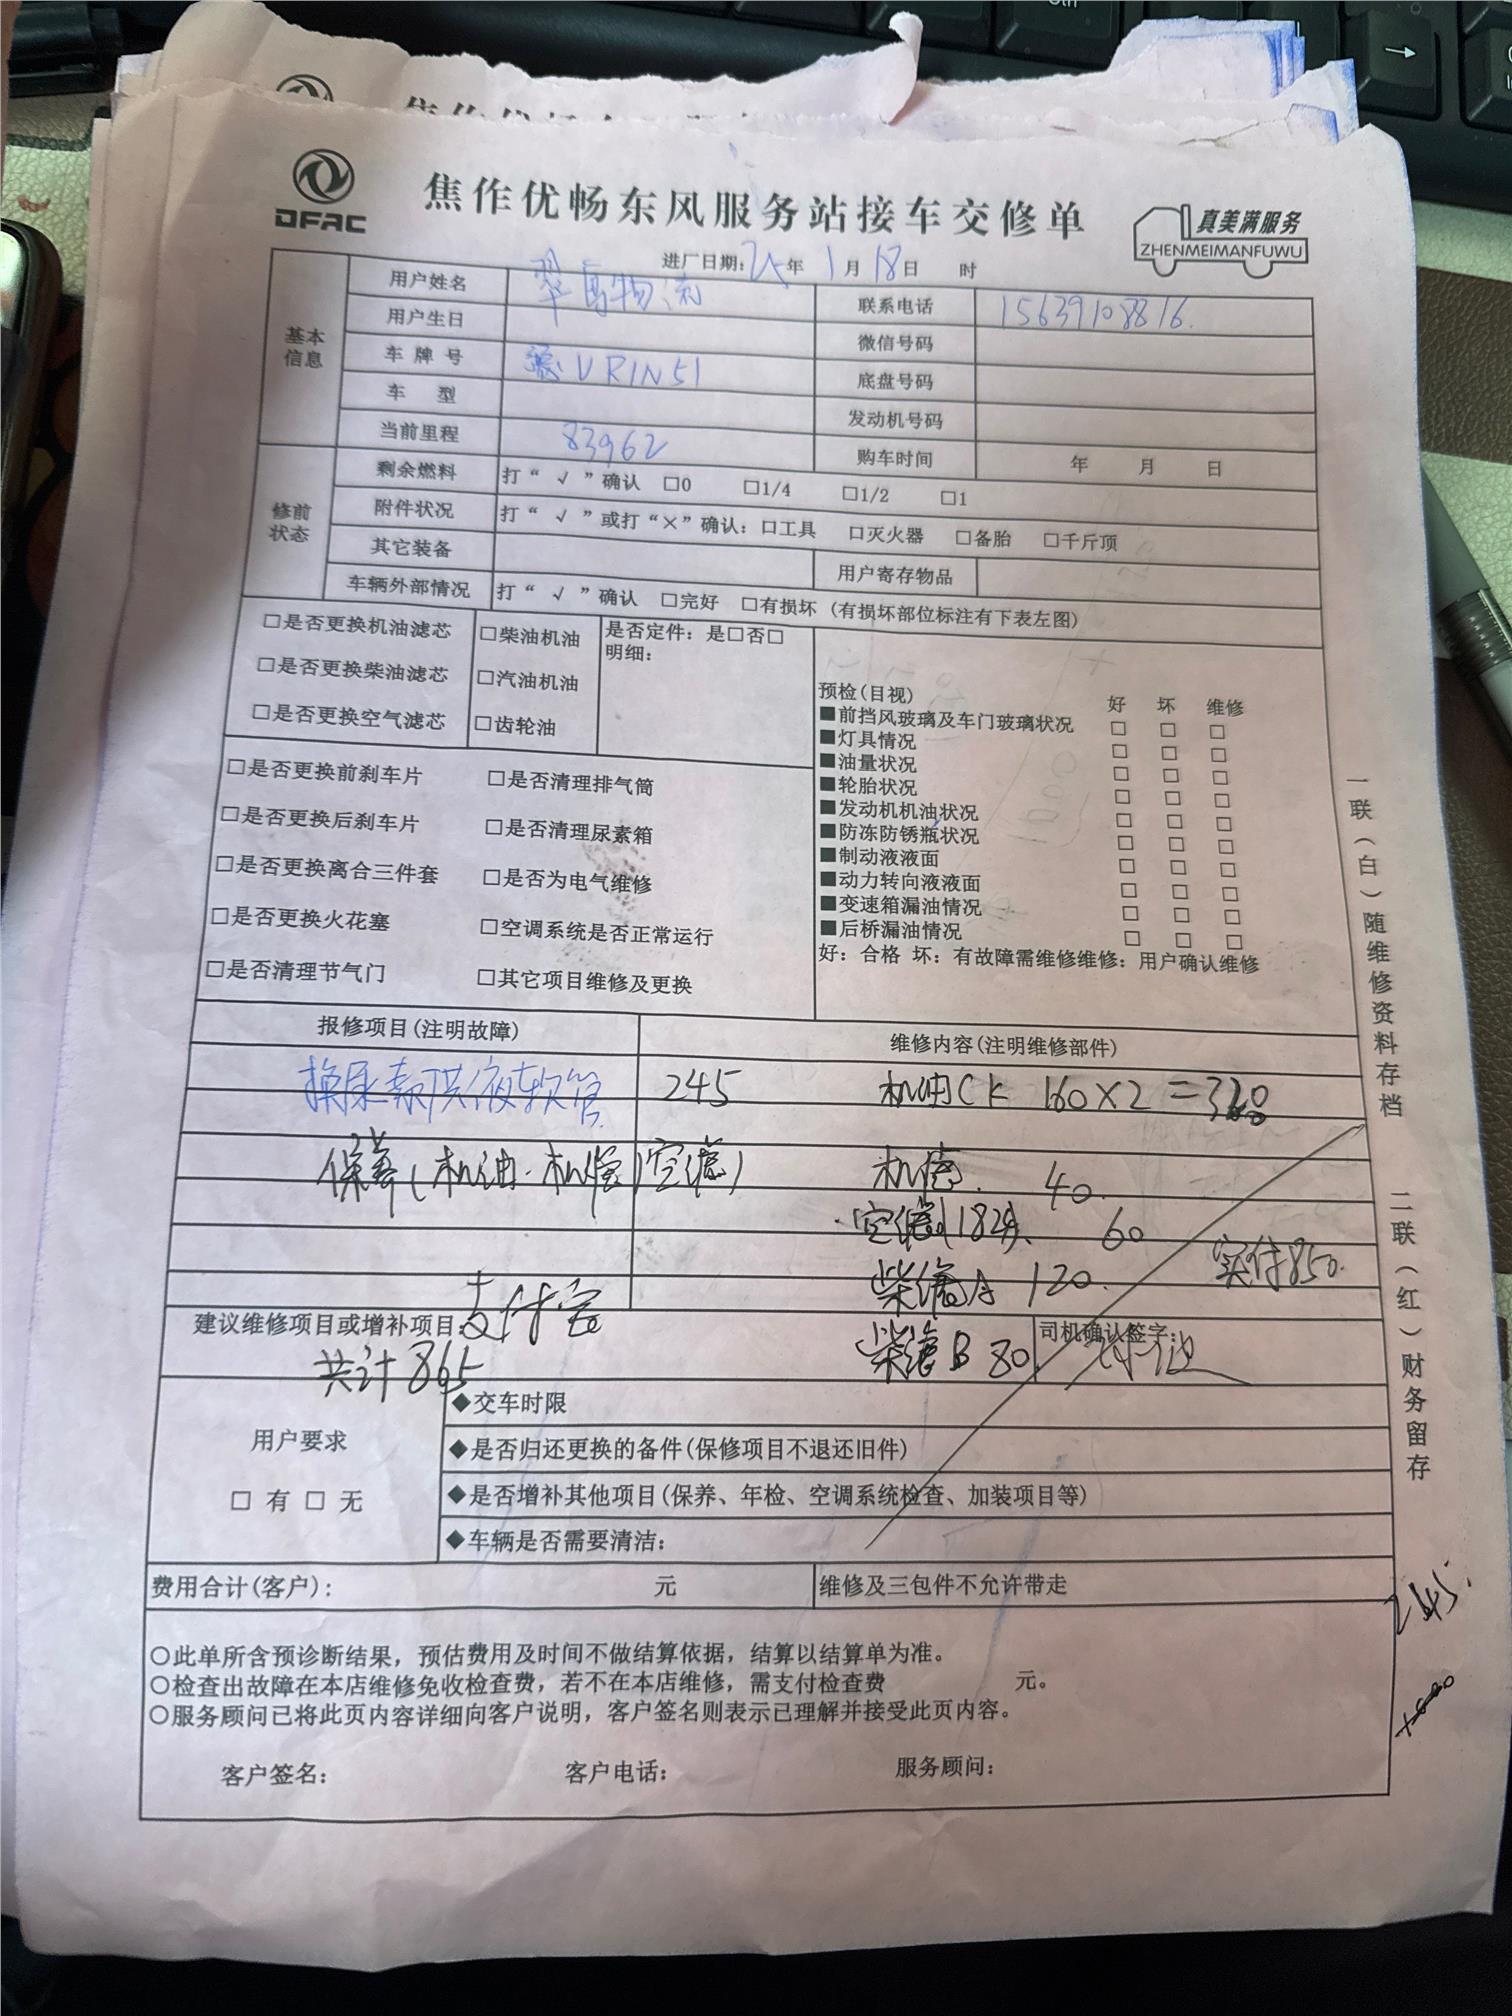 DFAC
焦作优畅东风服务站接车交修单
真美满服务
ZHENMEIMANFUWU
进厂日期：25年 1月 18日 时
基本信息
用户姓名 翠禹物流 联系电话 15639108816.
用户生日 微信号码
车牌号 豫VR1N51 底盘号码
车型 发动机号码
当前里程 83962 购车时间 年 月 日
修前状态
剩余燃料 打“√”确认 □0 □1/4 □1/2 □1
附件状况 打“√”或打“×”确认：□工具 □灭火器 □备胎 □千斤顶
其它装备 用户寄存物品
车辆外部情况 打“√”确认 □完好 □有损坏 (有损坏部位标注有下表左图)
□是否更换机油滤芯 □柴油机油 是否定件：是□否□
明细：
□是否更换柴油滤芯 □汽油机油
□是否更换空气滤芯 □齿轮油
□是否更换前刹车片 □是否清理排气筒
□是否更换后刹车片 □是否清理尿素箱
□是否更换离合三件套 □是否为电气维修
□是否更换火花塞 □空调系统是否正常运行
□是否清理节气门 □其它项目维修及更换
预检(目视) 好 坏 维修
■前挡风玻璃及车门玻璃状况 □ □ □
■灯具情况 □ □ □
■油量状况 □ □ □
■轮胎状况 □ □ □
■发动机机油状况 □ □ □
■防冻防锈瓶状况 □ □ □
■制动液液面 □ □ □
■动力转向液液面 □ □ □
■变速箱漏油情况 □ □ □
■后桥漏油情况 □ □ □
好：合格 坏：有故障需维修维修：用户确认维修
报修项目(注明故障) 维修内容(注明维修部件)
换尿素供液软管 245 机油CK 160×2=320
保养(机油·机滤 空滤) 机滤. 40.
空滤 1824. 60
实付850.
柴滤A 120.
建议维修项目或增补项目：支付宝 柴滤B 80 司机确认签字：
共计865
用户要求
□ 有 □ 无
◆交车时限
◆是否归还更换的备件(保修项目不退还旧件)
◆是否增补其他项目(保养、年检、空调系统检查、加装项目等)
◆车辆是否需要清洁：
费用合计(客户)： 元 维修及三包件不允许带走
○此单所含预诊断结果，预估费用及时间不做结算依据，结算以结算单为准。
○检查出故障在本店维修免收检查费，若不在本店维修，需支付检查费 元。
○服务顾问已将此页内容详细向客户说明，客户签名则表示已理解并接受此页内容。
客户签名： 客户电话： 服务顾问：
一联（白）随维修资料存档 二联（红）财务留存
245.